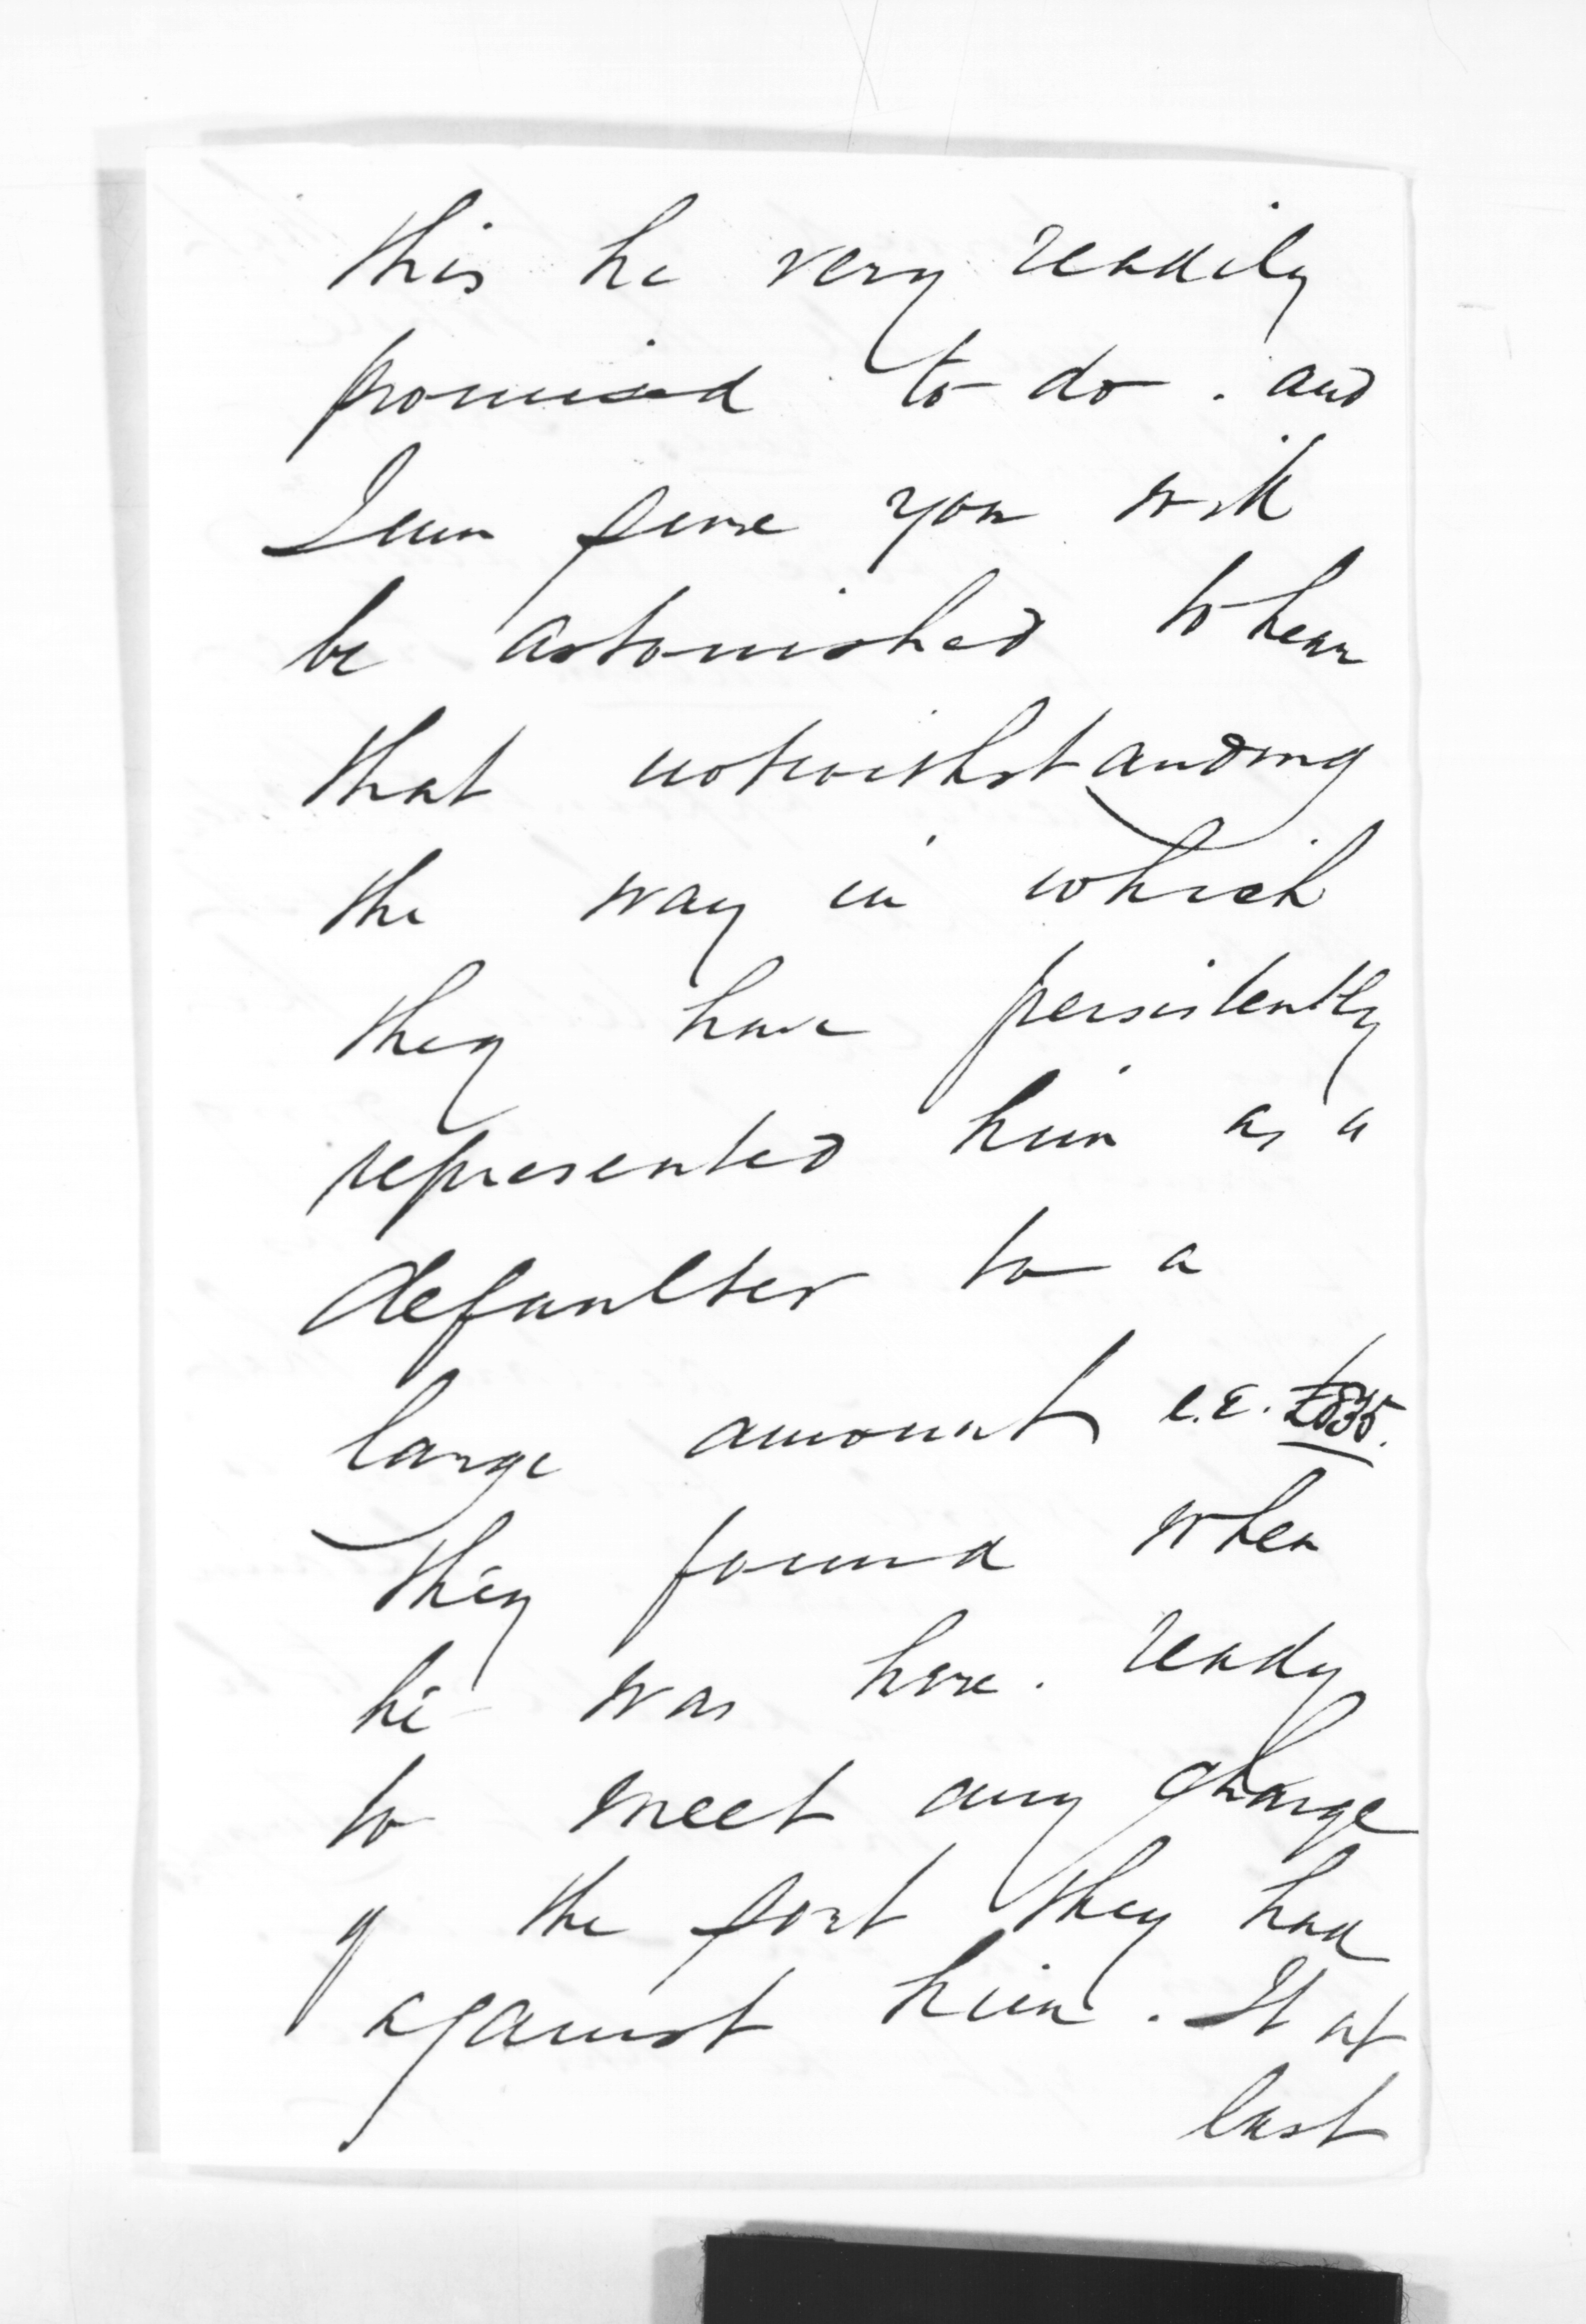 this he very readily
promised to do. and
I am sure you will
be astonished to hear
that notwithstanding
the way in which
they have persistently
represented him as a
defaulter to a
large amount i.e. £835.
They found when
he was here. ready
to meet any charge
of the sort they had
against him. It at
last